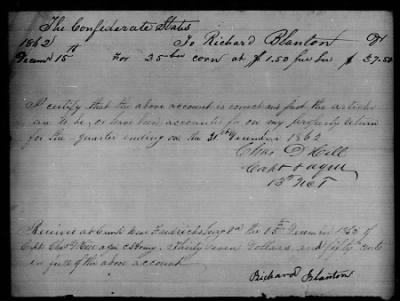 The Confederate States
1862 To Richard Blanton Dr
Decem 15th For 35 bus corn at $1.50 per bus $ 37.50
I certify that the above account is correct and that the articles
are to be, or have been accounted for on my property return
for the quarter ending on the 31st December 1862
Chas D Hill
Capt & aqm
13th
Received at Camp near Fredricksburg Va the 15th December 1862 of
Capt Chas D Hill aqm CS Army, Thirty seven Dollars, and fifty cents
in full of the above account
Richard Blanton